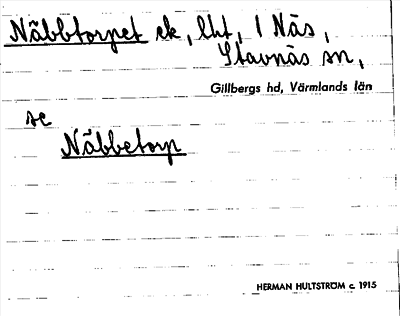 Näbbtorpet ek, lht, 1 Näs,
Stavnäs sn,
Gillbergs hd, Värmlands län
se
Näbbetorp
HERMAN HULTSTRÖM c. 1915